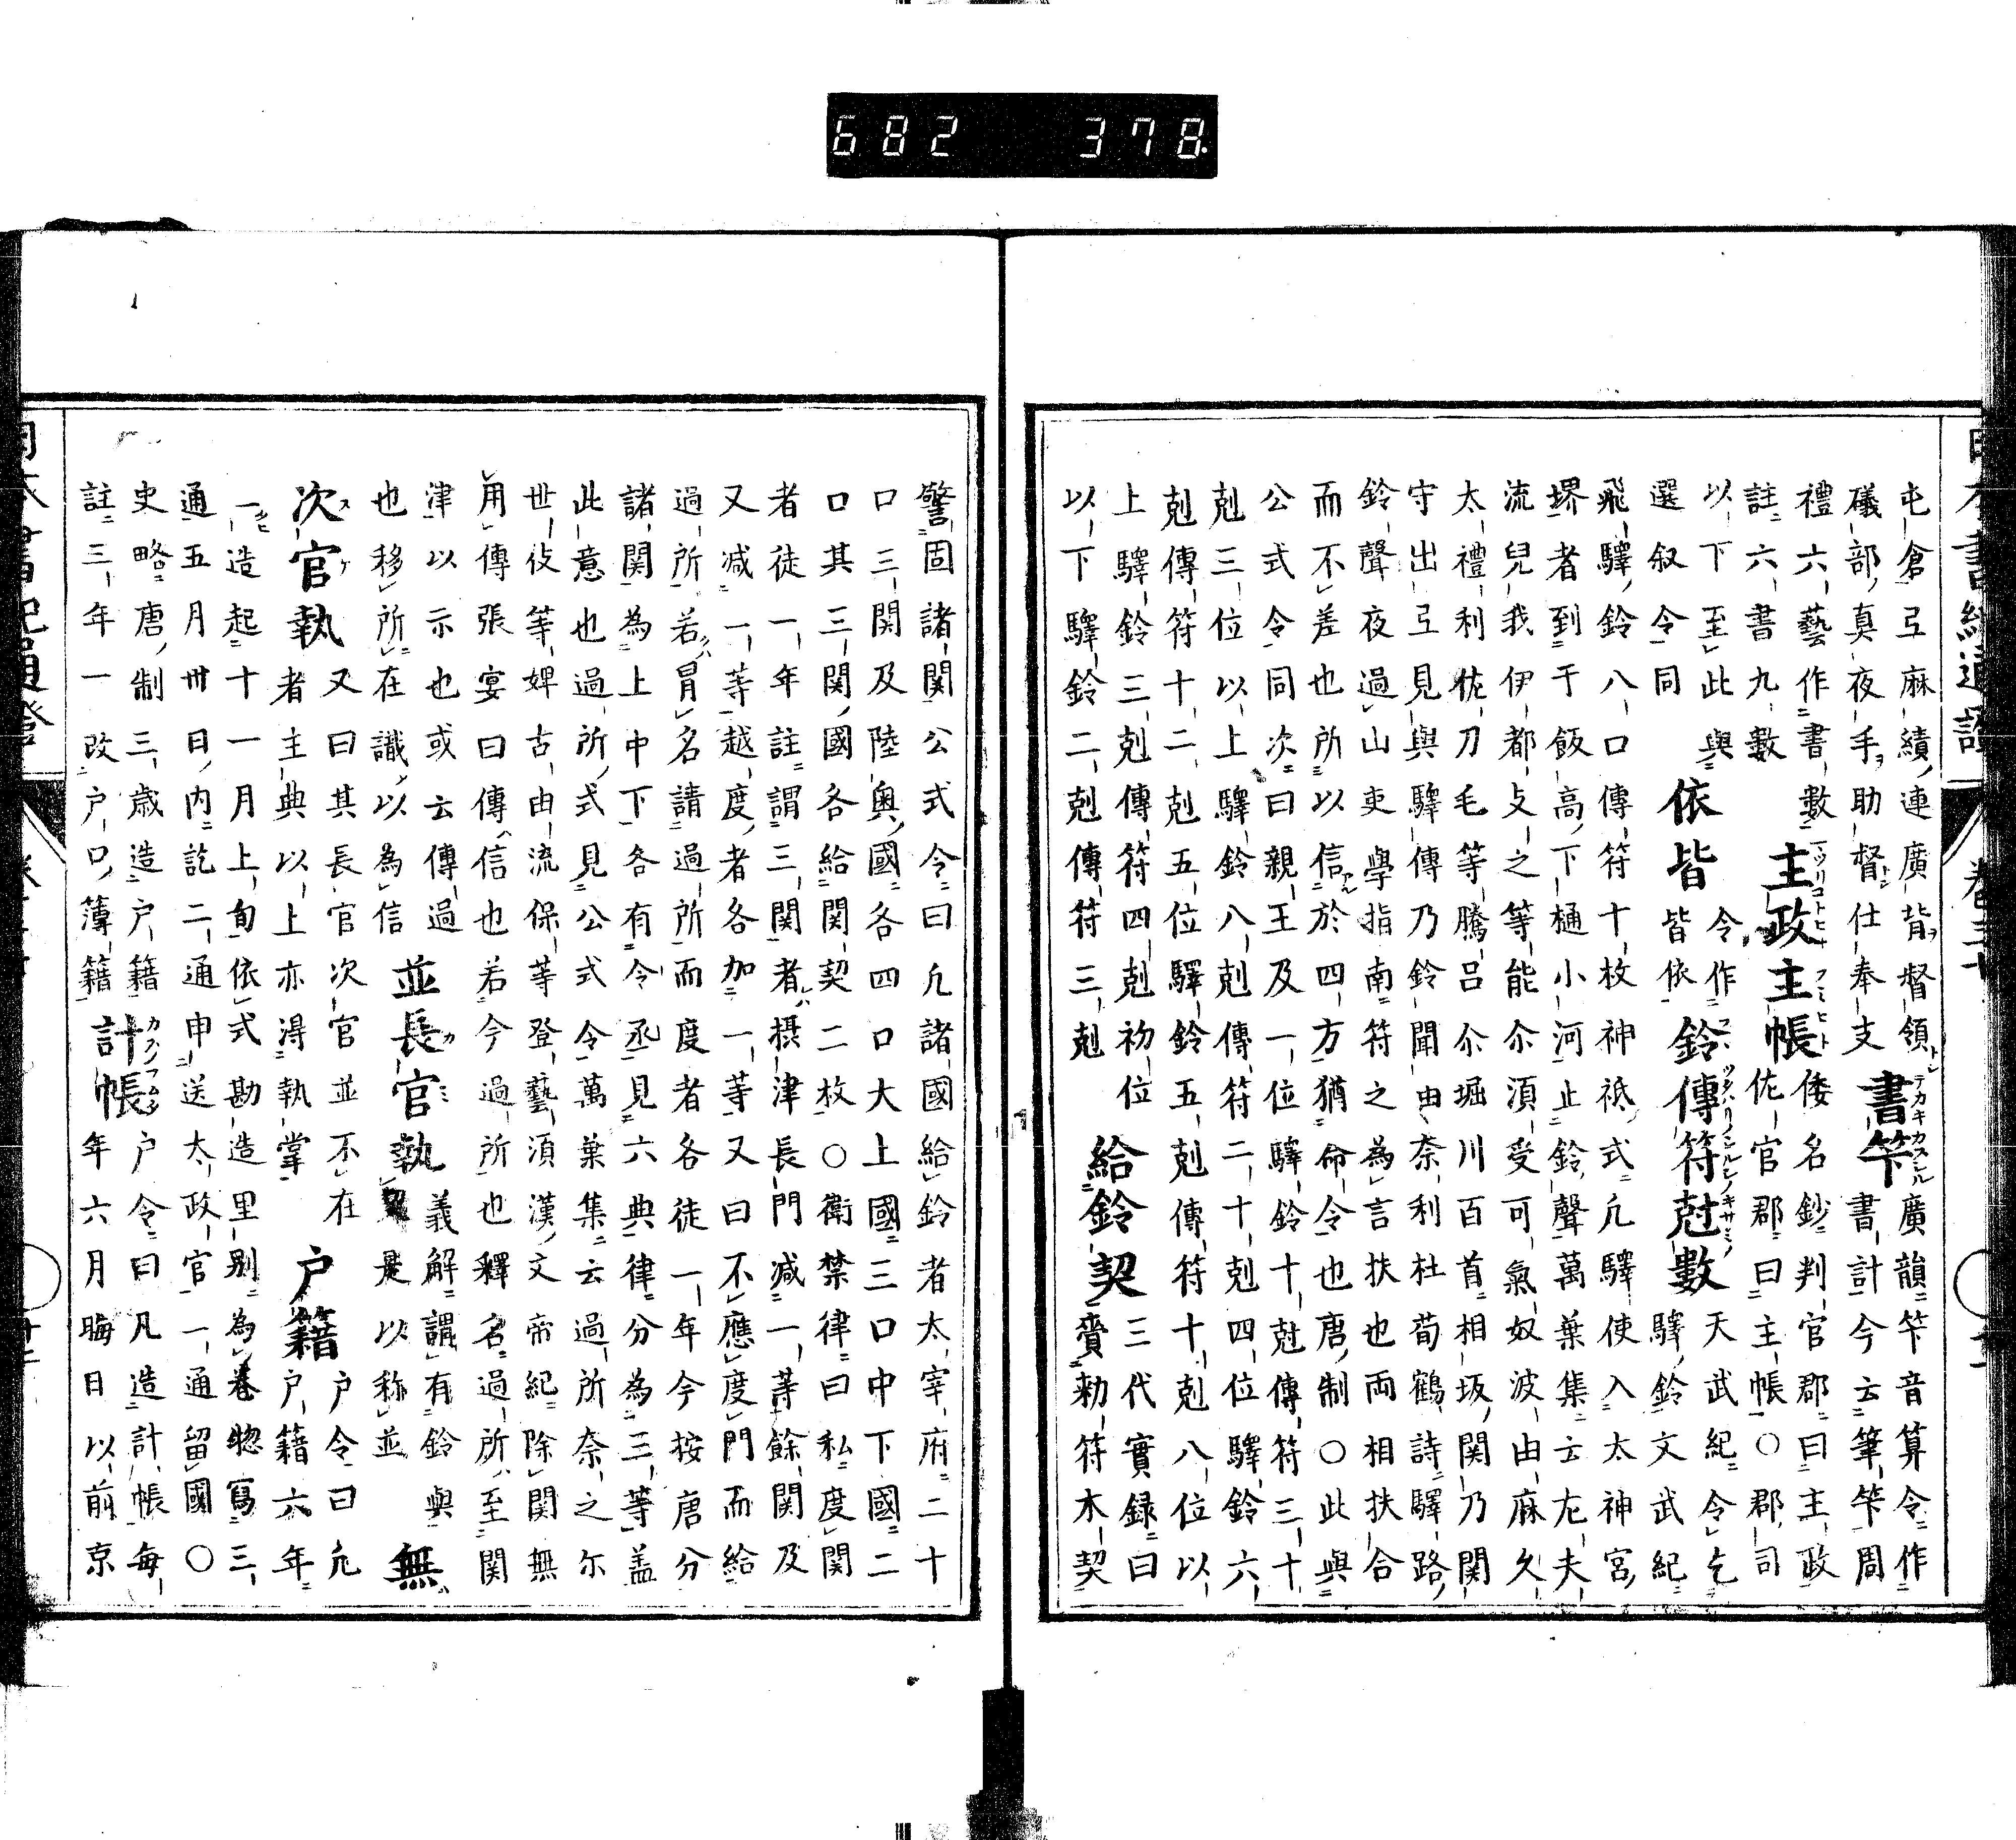 682 378
日本書紀通證 卷三十
屯倉弖麻績連廣背督領
礒部真夜手助督仕奉支 書筭 廣韻筭音算令作
禮六藝作書數 書計今云筆筭周
註六書九數 主政主帳 倭名鈔判官郡曰主政
以下至此與 佐官郡曰主帳○郡司
選叙令同 依皆 令作皆依 鈴傳符尅數 天武紀令乞驛鈴文武紀
飛驛鈴八口傳符十枚神祇式凡驛使入太神宮
堺者到于飯高下樋小河止鈴聲萬葉集云左夫
流兒我伊都攴之等能尒須受可氣奴波由麻久
太禮利佐刀毛等騰呂尒堀川百首相坂関乃関
守出弖見與驛傳乃鈴聞由奈利杜荀鶴詩驛路
鈴聲夜過山吏學指南符之為言扶也両相扶合
而不差也所以信於四方猶命令也唐制○此與
公式令同次曰親王及一位驛鈴十尅傳符三十
剋三位以上驛鈴八剋傳符二十剋四位驛鈴六
剋傳符十二剋五位驛鈴五剋傳符十剋八位以
上驛鈴三剋傳符四剋初位
以下驛鈴二剋傳符三剋 給鈴契 三代實録曰賚勅符木契
警固諸関公式令曰凡諸國給鈴者太宰府二十
口三関及陸奥國各四口大上國三口中下國二
口其三関國各給関契二枚○衛禁律曰私度関
者徒一年註謂三関者摂津長門減一等餘関及
又減一等越度者各加一等又曰不應度門而給
過所若冐名請過所而度者各徒一年今按唐分
諸関為上中下各有令丞見六典律分為三等盖
此意也過所式見公式令萬葉集云過所奈之尓
世伎等婢古由流保等登藝須漢文帝紀除関無
用傳張宴曰傳信也若今過所也釋名過所至関
津以示也或云傳過
也移所在識以為信 並長官執 義解謂有鈴與契是以称並 無
次官執 又曰其長官次官並不在
者主典以上亦淂執掌 户籍 户令曰凡户籍六年
一造起十一月上旬依式勘造里別為卷惣寫三
通五月卅日内訖二通申送太政官一通留國○
史略唐制三歳造户籍 計帳 户令曰凡造計帳毎
註三年一改户口薄籍 年六月晦日以前京